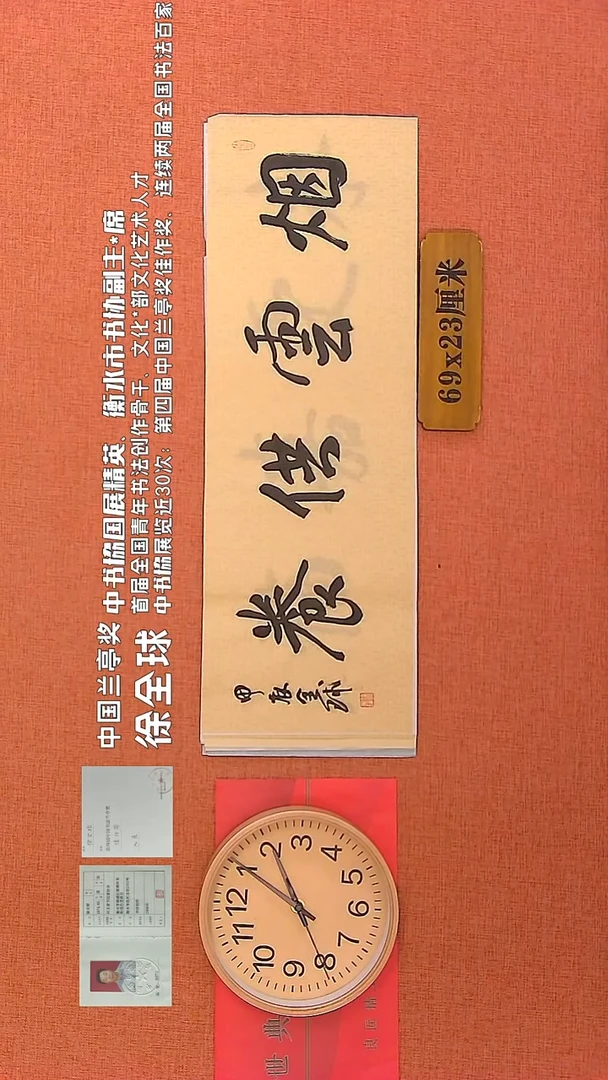 中国兰亭奖 中书协国展精英、衡水市书协副主*席
首届全国青年书法创作骨干、文化*部文化艺术人才
徐全球 中书协展览近30次：第四届中国兰亭奖佳作奖、连续两届全国书法百家
烟雲供養
甲辰全球
69x23厘米
12
1
2
3
4
5
6
7
8
9
10
11
世典